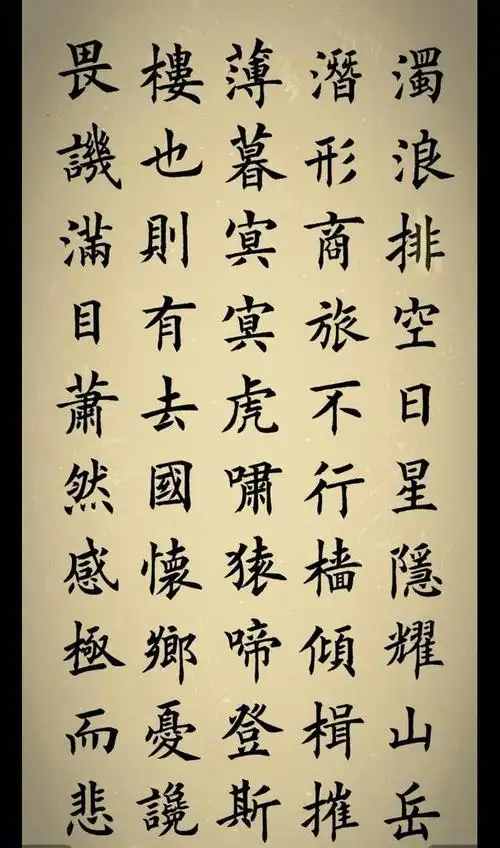 濁浪排空日星隱耀山岳
潛形商旅不行檣傾楫摧
薄暮冥冥虎嘯猿啼登斯
樓也則有去國懷鄉憂讒
畏譏滿目蕭然感極而悲